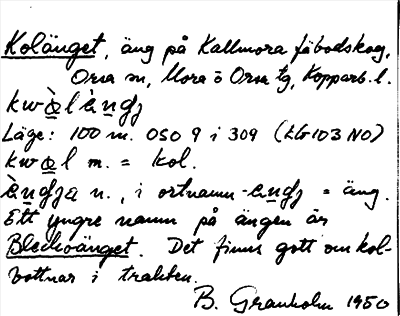 Kolänget, äng på Kallmora fäbodskog,
Orsa sn, Mora o Orsa tg, Kopparb. l.
Läge: 100 m. OSO 9 i 309 (LG103 NO)
m. = kol.
n., i ortnamn = äng.
Ett yngre namn på ängen är
Bleckoänget. Det finns gott om kol-
bottnar i trakten.
B. Granholm 1950